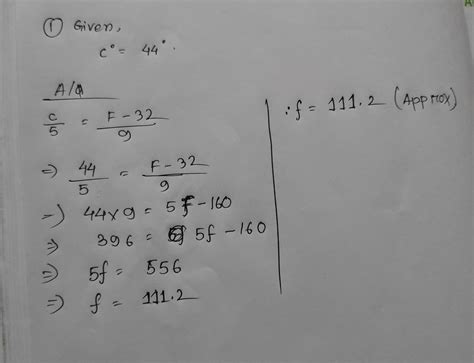 ① Given,
c° = 44°.
A/Q
c/5 = F-32/9
=) 44/5 = F-32/9
=) 44x9 = 5F-160
=) 396 = 5f-160
=) 5f = 556
=) f = 111.2
∴ f = 111.2 (Approx)